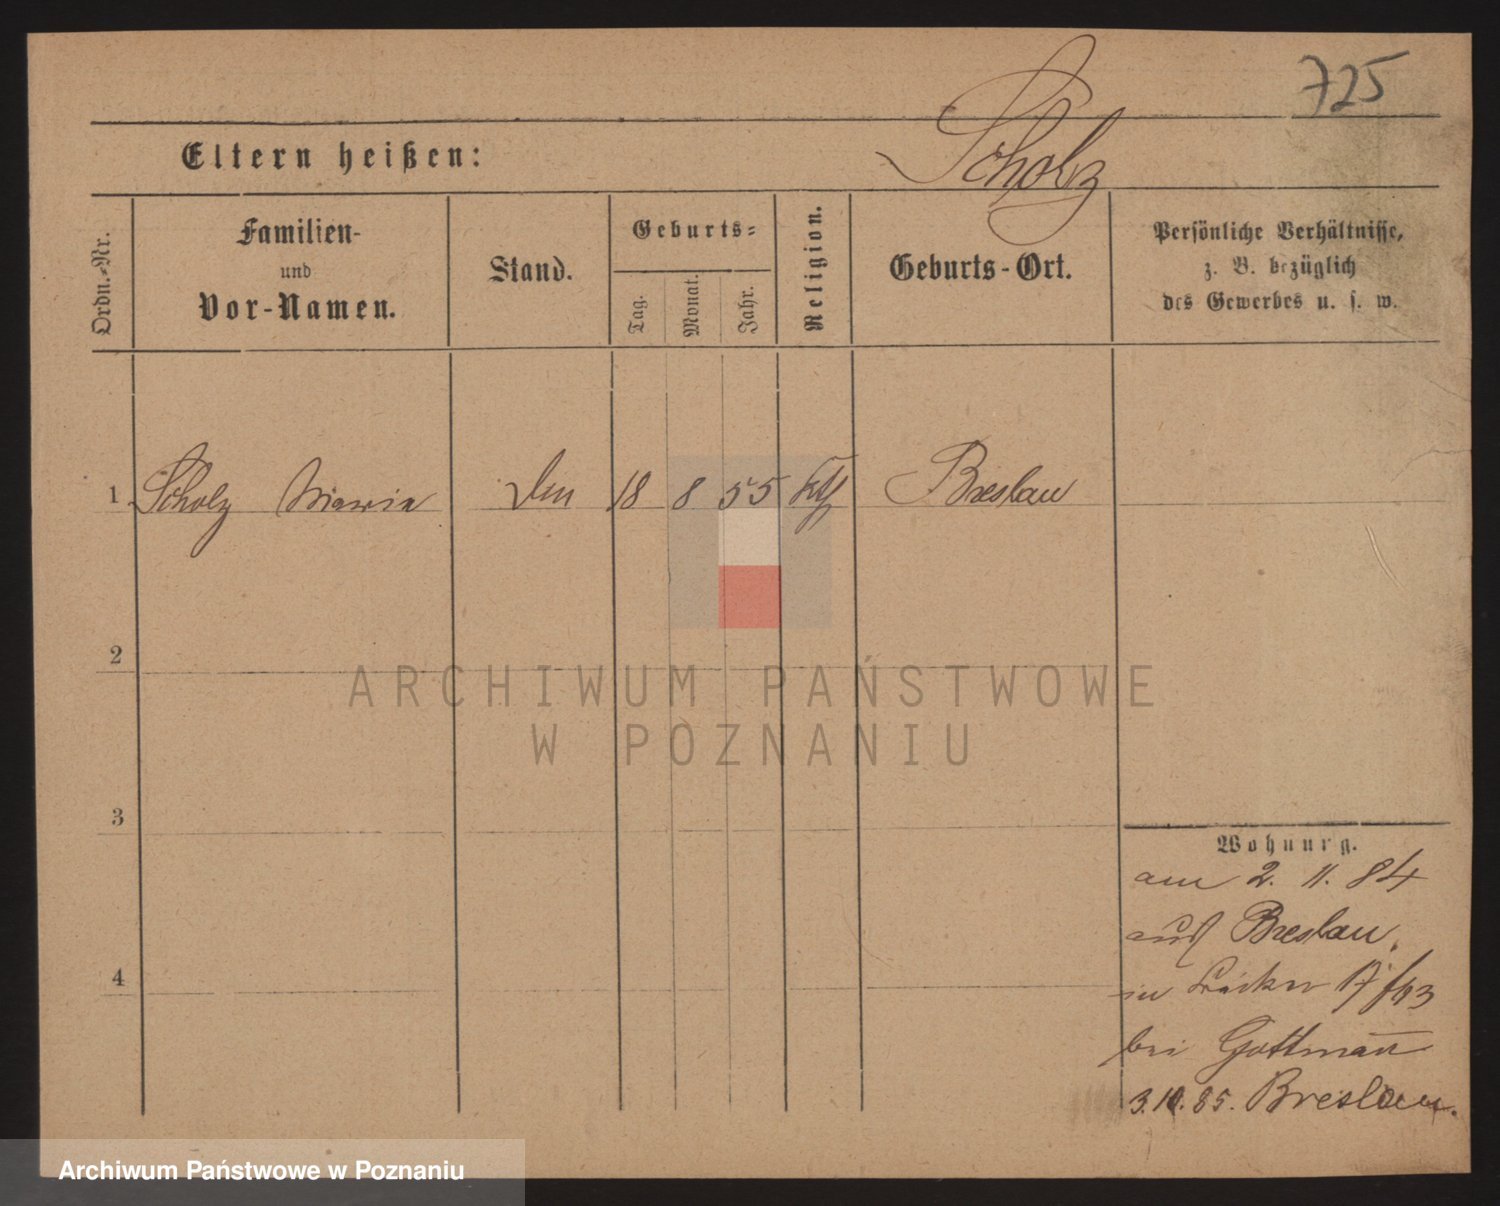 725
Scholz
Eltern heißen:
Ordn.-Nr.
Familien-
und
Vor-Namen.
Stand.
Geburts-
Tag.
Monat.
Jahr.
Religion.
Geburts-Ort.
Persönliche Verhältnisse,
z. B. bezüglich
des Gewerbes u. s. w.
1 Scholz Maria 18 8 55 kth Breslau
2
3
4
ARCHIWUM PAŃSTWOWE
W POZNANIU
Wohnung.
am 2. 11. 84
aus Breslau.
in 17
bei Gottmann
3.10.85. Breslau.
Archiwum Państwowe w Poznaniu